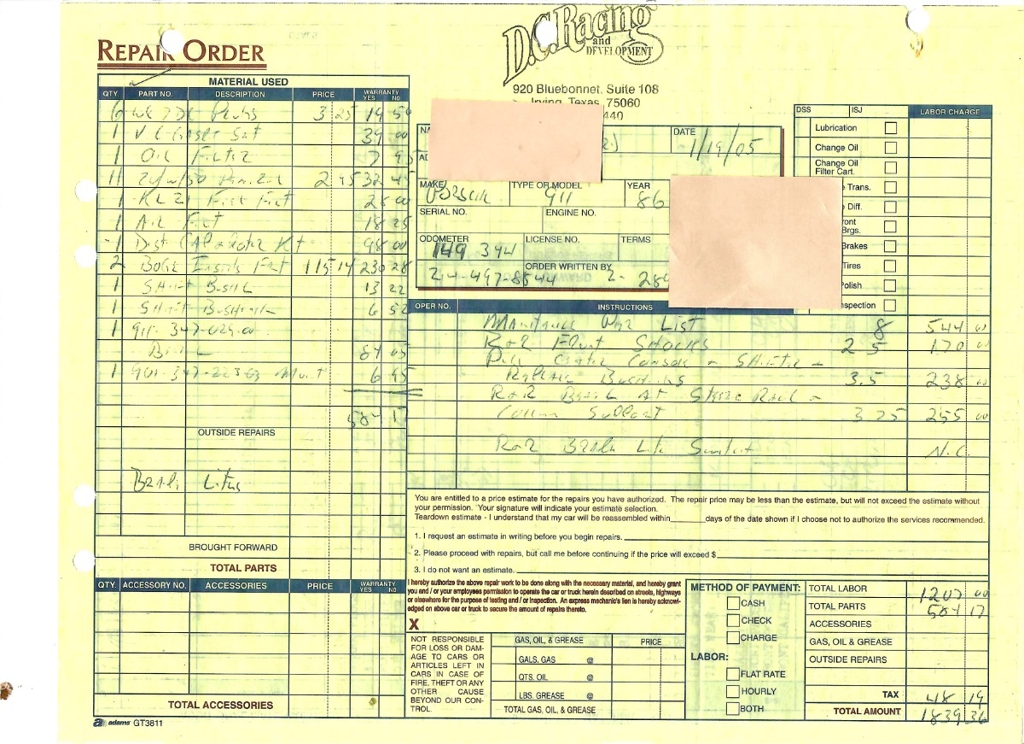 REPAIR ORDER
D.C. Racing
and
DEVELOPMENT
920 Bluebonnet, Suite 108
Irving, Texas 75060
440
MATERIAL USED
QTY. PART NO. DESCRIPTION PRICE WARRANTY YES NO
6 Plugs 3 25 19 50
1 V C Gasket Set 39 00
1 Oil Filter 7 95
11 20w/50 2 95 32 45
1 28 00
1 Air 18 25
1 Dist Kt 98 00
2 Boge Inserts 115 14 230 28
1 Shift Bush 13 22
1 Shift Bushing 6 52
1 911-347-029-00
84 05
1 901-347-223 03 Mount 6 95
584 17
OUTSIDE REPAIRS
BROUGHT FORWARD
TOTAL PARTS
QTY. ACCESSORY NO. ACCESSORIES PRICE WARRANTY YES NO
TOTAL ACCESSORIES
adams GT3811
DATE 1/19/05
MAKE Porsche TYPE OR MODEL 911 YEAR 86
SERIAL NO. ENGINE NO.
ODOMETER 149 394 LICENSE NO. TERMS
214-497-8544 ORDER WRITTEN BY
DSS ISJ LABOR CHARGE
Lubrication
Change Oil
Change Oil
Filter Cart.
Trans.
Diff.
Brgs.
Brakes
Tires
OPER NO. INSTRUCTIONS
Maintenance Per List 8 544 00
R & R Front Shocks 2 5 170 00
Pull Center Console - Shifter -
Replace Bushings 3.5 238 00
R & R At Steer Rack -
Column Support 3 75 255 00
R & R Brake N.C.
You are entitled to a price estimate for the repairs you have authorized. The repair price may be less than the estimate, but will not exceed the estimate without
your permission. Your signature will indicate your estimate selection.
Teardown estimate - I understand that my car will be reassembled within days of the date shown if I choose not to authorize the services recommended.
1. I request an estimate in writing before you begin repairs.
2. Please proceed with repairs, but call me before continuing if the price will exceed $
3. I do not want an estimate.
I hereby authorize the above repair work to be done along with the necessary material, and hereby grant
you and / or your employees permission to operate the car or truck herein described on streets, highways
or elsewhere for the purpose of testing and / or inspection. An express mechanic's lien is hereby acknowl-
edged on above car or truck to secure the amount of repairs thereto.
X
NOT RESPONSIBLE
FOR LOSS OR DAM-
AGE TO CARS OR
ARTICLES LEFT IN
CARS IN CASE OF
FIRE, THEFT OR ANY
OTHER CAUSE
BEYOND OUR CON-
TROL.
GAS, OIL, & GREASE PRICE
GALS. GAS @
QTS. OIL @
LBS. GREASE @
TOTAL GAS, OIL, & GREASE
METHOD OF PAYMENT:
CASH
CHECK
CHARGE
LABOR:
FLAT RATE
HOURLY
BOTH
TOTAL LABOR 1207 00
TOTAL PARTS 584 17
ACCESSORIES
GAS, OIL & GREASE
OUTSIDE REPAIRS
TAX 48 19
TOTAL AMOUNT 1839 36